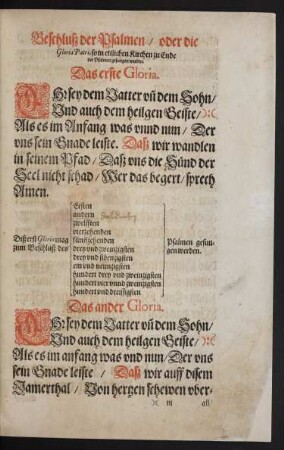 Beschluß der Psalmen / oder die
Gloria Patri, so in etlichen Kirchen zu Ende
der Psalmen gesungen werden.
Das erste Gloria.
EHr sey dem Vatter vñ dem Sohn /
Vnd auch dem heilgen Geiste /
Als es im Anfang was vnnd nun / Der
vns sein Gnade leiste. Daß wir wandlen
in seinem Pfad / Daß vns die Sünd der
Seel nicht schad / Wer das begert / sprech
Amen.
Diß erst Gloria mag
zum Beschluß des
Ersten
andern
zwelfften
vierzehenden
fünffzehenden
drey vnd zwenzigsten
drey vnd sibenzigsten
ein vnd neunzigsten
hundert drey vnd zwenzigsten
hundert vier vnnd zwenzigsten
hundert vnd dreissigsten
Psalmen gesun-
gen werden.
Das ander Gloria.
EHr sey dem Vatter vñ dem Sohn /
Vnd auch dem heilgen Geiste /
Als es im anfang was vnd nun / Der vns
sein Gnade leiste / Daß wir auff disem
Jamerthal / Von hertzen schewen vber-
all